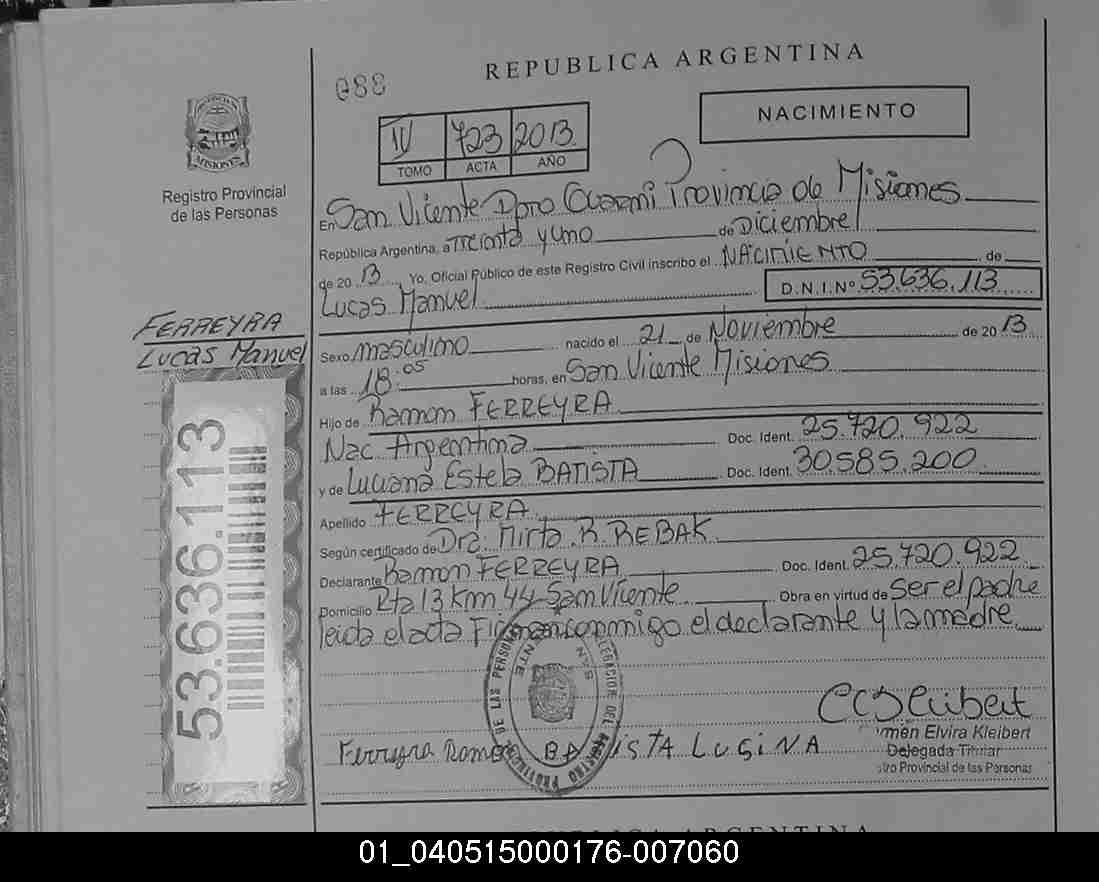 088
REPUBLICA ARGENTINA
NACIMIENTO
IV 723 2013
TOMO ACTA AÑO
Registro Provincial
de las Personas
En San Vicente Dpto Guarani Provincia de Misiones
República Argentina, a Treinta y uno de Diciembre
de 20 13 Yo, Oficial Público de este Registro Civil inscribo el NACIMIENTO de
Lucas Manuel D.N.I.Nº 53.636.113
FERREYRA
LUCAS MANUEL
Sexo masculino nacido el 21 de Noviembre de 20 13
a las 18:05 horas, en San Vicente Misiones
Hijo de Ramon FERREYRA
Nac Argentina Doc. Ident. 25.720.922
y de Luciana Estela BATISTA Doc. Ident. 30.585.200
Apellido FERREYRA
Según certificado de Dra. Mirta R. REBAK
Declarante Ramon FERREYRA Doc. Ident. 25.720.922
Domicilio Rta 13 Km 44 San Vicente Obra en virtud de ser el padre
leida el acta Firman conmigo el declarante y la madre
53.636.113
Ferreyra Ramo BATISTA LUSINA
men Elvira Kleibert
Delegada Titular
tro Provincial de las Personas
REPUBLICA ARGENTINA
01_040515000176-007060